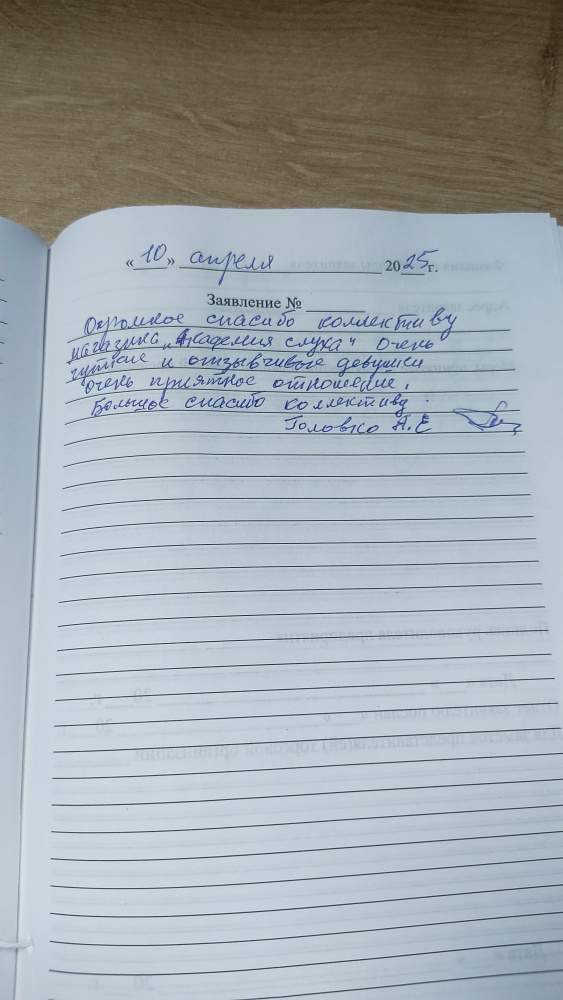 «10» апреля 2025г.
Заявление № 
Огромное спасибо коллективу
магазина „Академия слуха" очень
чуткие и отзывчивые девушки
очень приятное отношение.
Большое спасибо коллективу.
Головко А.Е